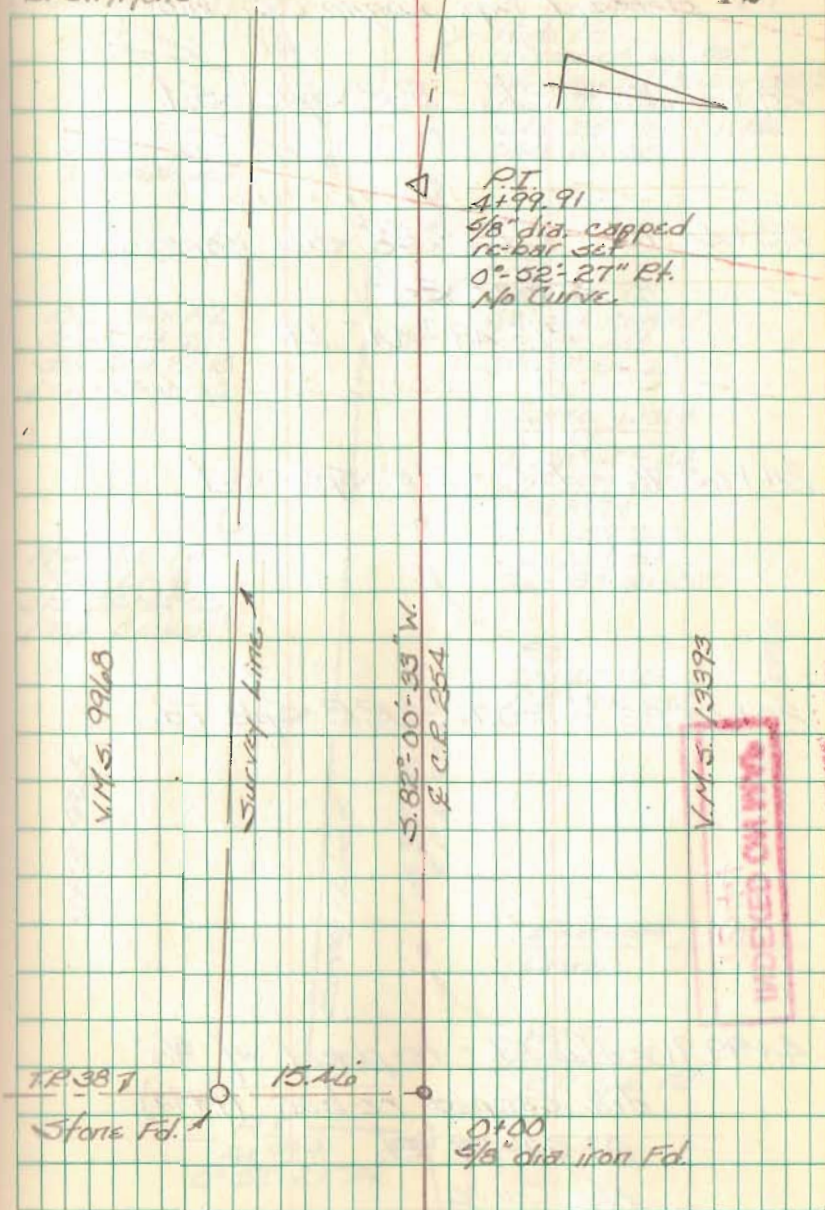 P.I.
4+99.91
5/8" dia. capped
re-bar set
0°-52'-27" Rt.
No Curve
V.M.S. 9968
Survey Line
S.82°-00'-33" W.
℄ C.R. 254
V.M.S. 13393
INDEXED ON MAP
T.R. 387
15.46
Stone Fd.
0+00
5/8" dia. iron Fd.